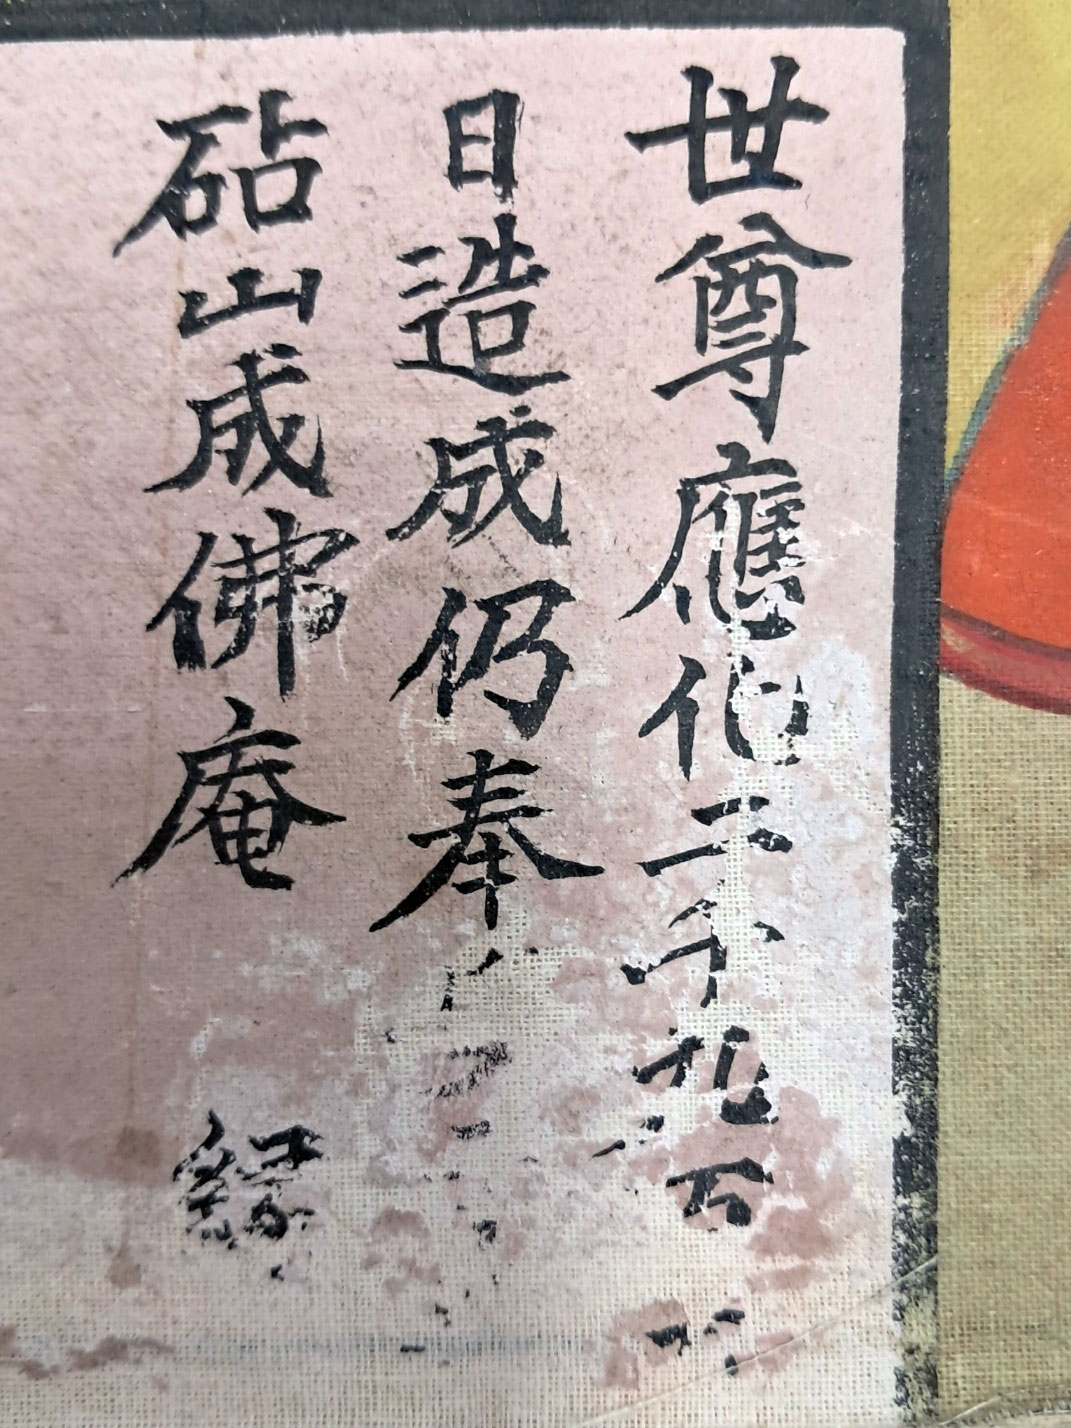 世尊應化二千九百
日造成仍奉
砧山成佛庵 緣